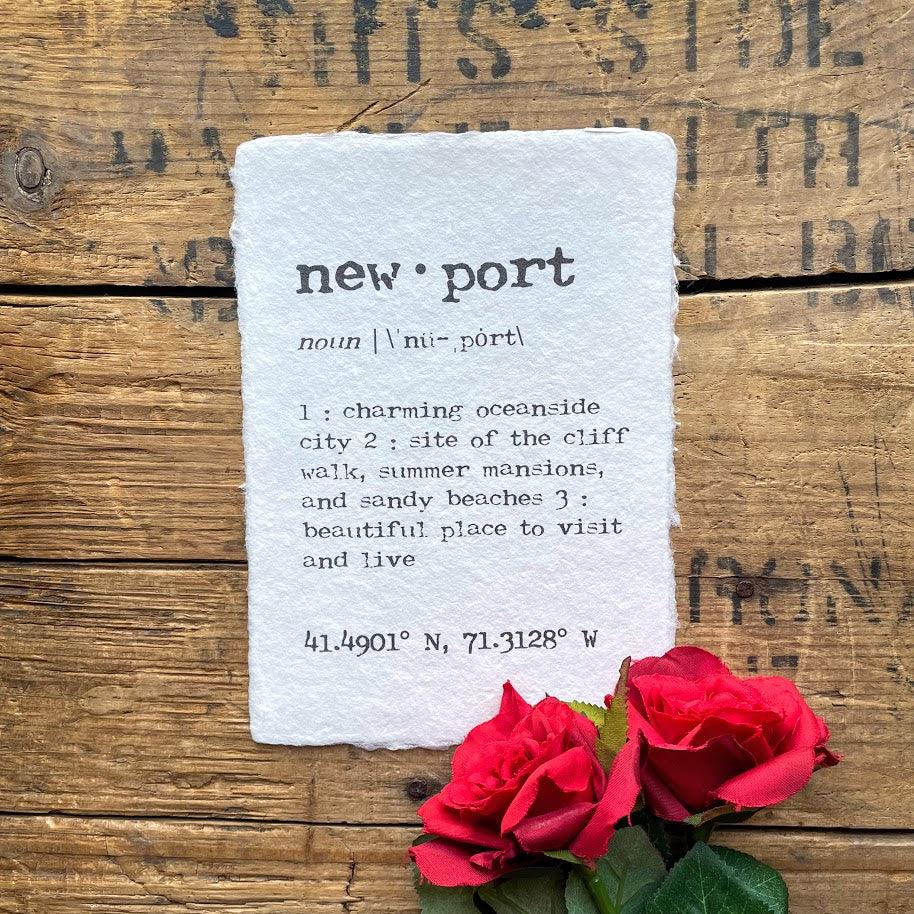 SIDE
WITH
new·port
noun | \ˈnü-ˌpȯrt\
1 : charming oceanside
city 2 : site of the cliff
walk, summer mansions,
and sandy beaches 3 :
beautiful place to visit
and live
41.4901° N, 71.3128° W